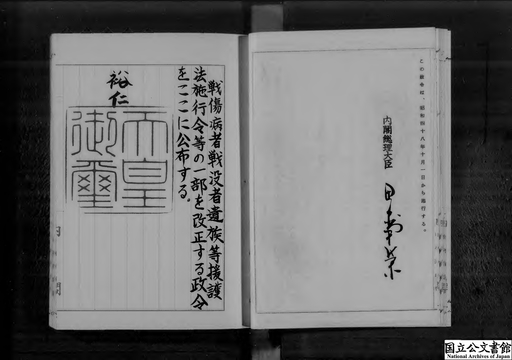 この政令は、昭和四十八年十月一日から施行する。
内閣総理大臣
田中角栄
戦傷病者戦没者遺族等援護
法施行令等の一部を改正する政令
をここに公布する。
裕仁
天皇
御璽
国立公文書館
National Archives of Japan